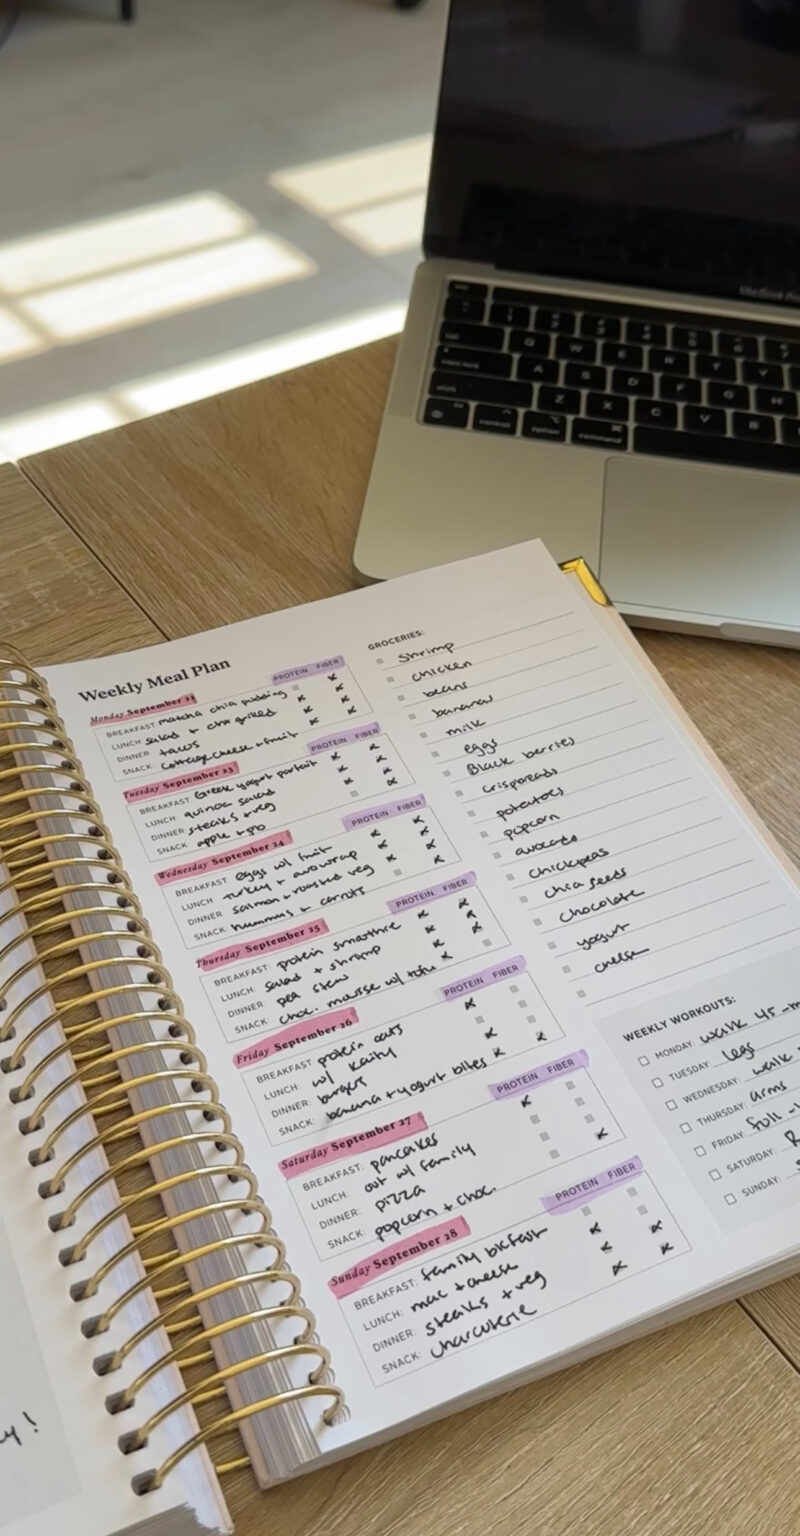 Weekly Meal Plan
Monday September 22
PROTEIN FIBER
BREAKFAST: matcha chia pudding
LUNCH: salad + chx grilled
DINNER: tacos
SNACK: cottage cheese + fruit
Tuesday September 23
PROTEIN FIBER
BREAKFAST: Greek yogurt parfait
LUNCH: quinoa salad
DINNER: steaks + veg
SNACK: apple + pb
Wednesday September 24
PROTEIN FIBER
BREAKFAST: eggs w/ fruit
LUNCH: turkey + avo wrap
DINNER: salmon + roasted veg
SNACK: hummus + carrots
Thursday September 25
PROTEIN FIBER
BREAKFAST: protein smoothie
LUNCH: salad + shrimp
DINNER: pea stew
SNACK: choc. mousse w/ tofu
Friday September 26
PROTEIN FIBER
BREAKFAST: protein oats
LUNCH: w/ Kathy
DINNER: burger
SNACK: banana + yogurt bites
Saturday September 27
PROTEIN FIBER
BREAKFAST: pancakes
LUNCH: out w/ family
DINNER: pizza
SNACK: popcorn + choc.
Sunday September 28
PROTEIN FIBER
BREAKFAST: family bkfast
LUNCH: mac + cheese
DINNER: steaks + veg
SNACK: charcuterie
GROCERIES:
shrimp
chicken
beans
bananas
milk
eggs
Black berries
crispbreads
potatoes
popcorn
avocado
chickpeas
chia seeds
chocolate
yogurt
cheese
WEEKLY WORKOUTS:
MONDAY: walk 45
TUESDAY: legs
WEDNESDAY: walk
THURSDAY: arms
FRIDAY: full
SATURDAY:
SUNDAY:
MacBook Pro
Q W E R T Y
A S D F G H
Z X C V B N
control option command